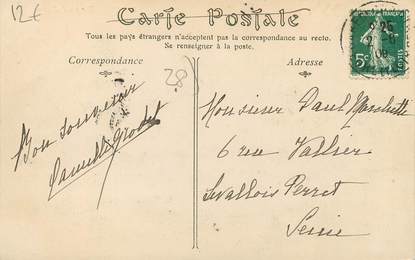 12€
Carte Postale
Tous les pays étrangers n'acceptent pas la correspondance au recto.
Se renseigner à la poste.
Correspondance
Adresse
28
5c
POSTES
Bon souvenir
Camille
Monsieur Paul
6 rue Vallier
Levallois Perret
Seine